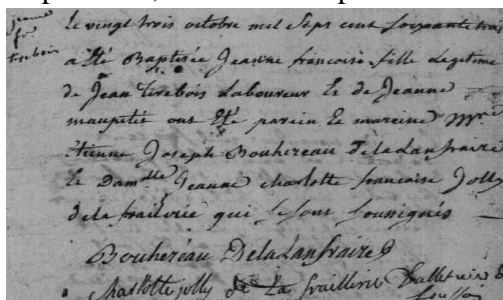 jeanne
fr
tirebois
Le vingt trois octobre mil Sept cent Soixante trois
a Eté Baptisée Jeanne francoise fille Legitime
de Jean tirebois Laboureur Et de Jeanne
maupetit ont Eté parein Et mareine Mre
Etienne Joseph Bouhereau Delalanfraire
Et Damelle Jeanne charlotte francoise Jolly
dela frailerie qui se sont soussignés
Bouhereau Delalanfraire
charlotte jolly de La fraillerie